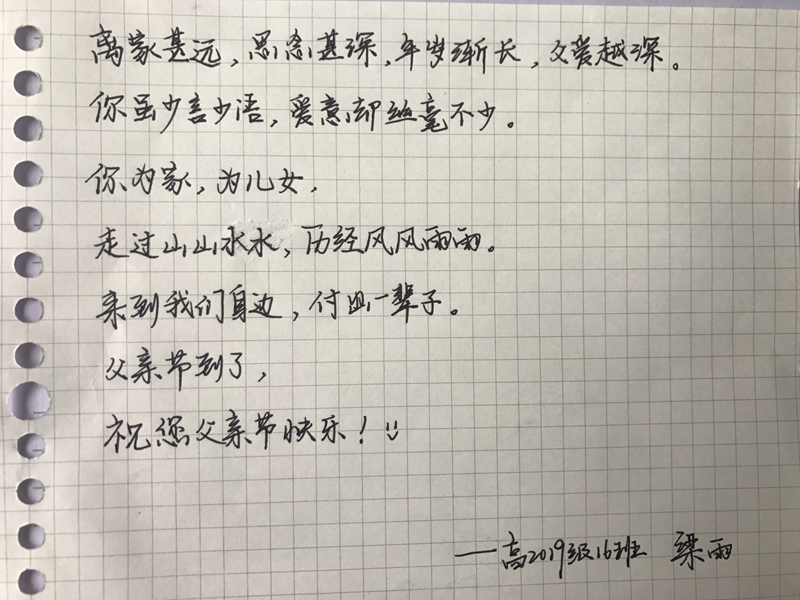 离家甚远，思念甚深，年岁渐长，父爱越深。
你虽少言少语，爱意却丝毫不少。
你为家，为儿女，
走过山山水水，历经风风雨雨。
来到我们身边，付出一辈子。
父亲节到了，
祝您父亲节快乐！
——高2019级16班 梁雨